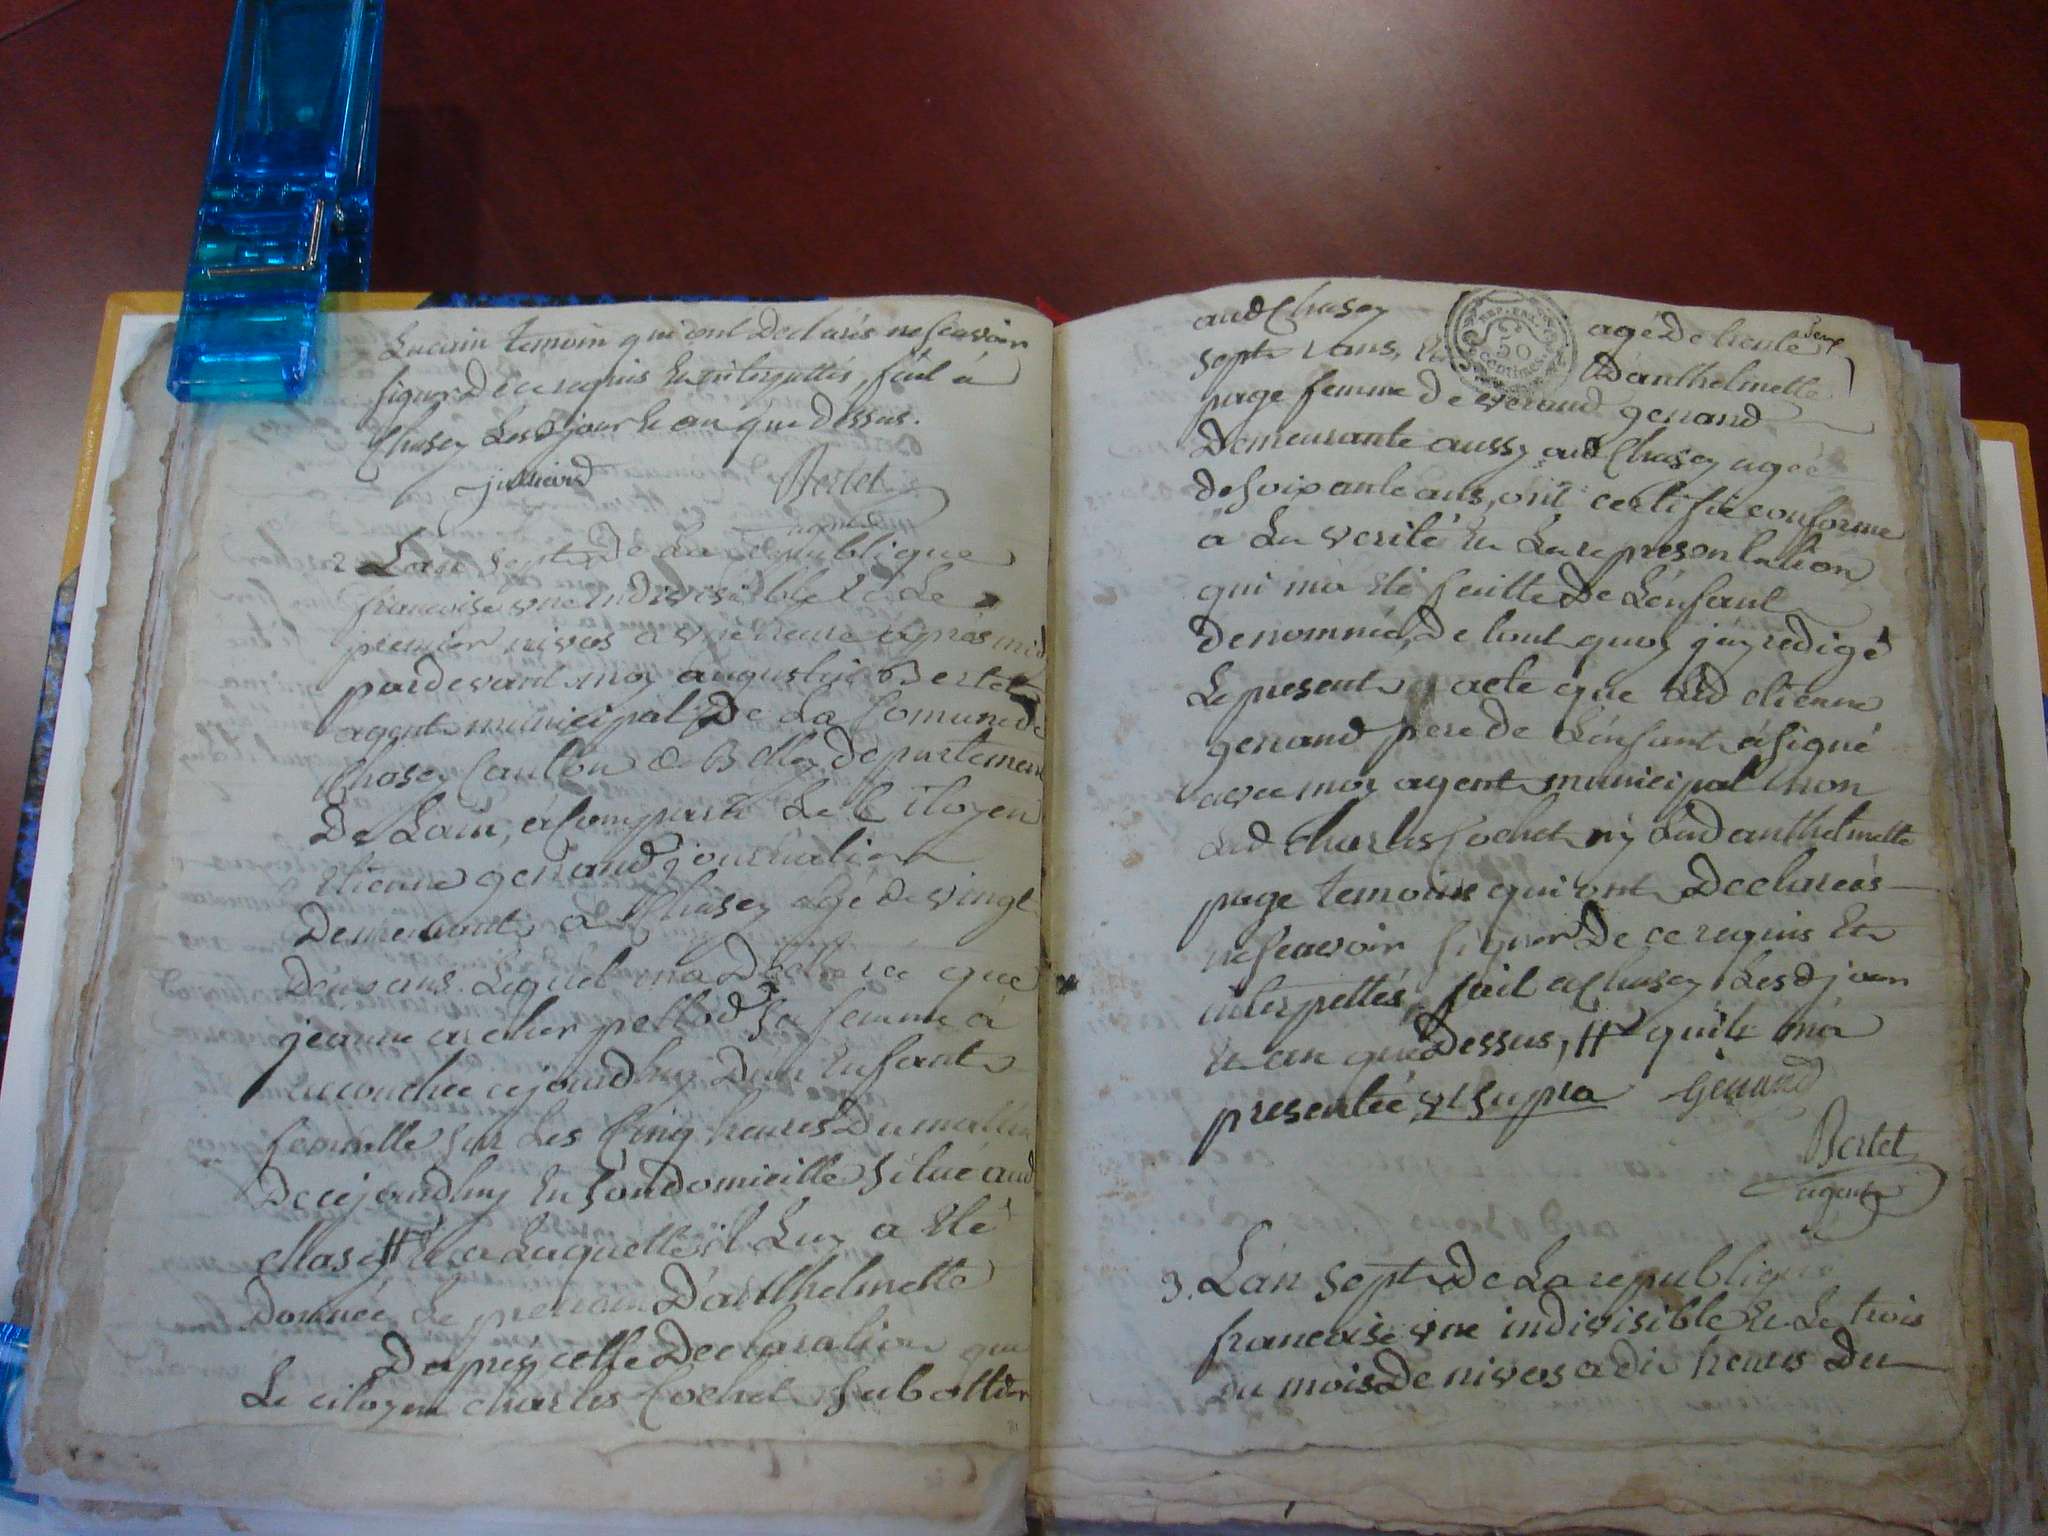 Lucain temoin qui ont declarés ne scavoir
signer de ce requis et interpettés, fait à
Chasey Lesd jour et an que dessus.
Bertet
agent
2 L'an sept de La republique
francoise une indivisible et Le
premier nivos a une heure après mid
pardevant moy augustin Bertet
agent municipal De La Comune de
Chasey Canton de Belley departement
De Lain, à Comparu Le Citoyen
etienne genand journalier
Demeurant a Chasey agé de vingt
deux ans Lequel ma declaré que
jeanne archer pellod sa femme à
accouchée cejourdhuy D'un Enfant
femelle sur Les Cinq heures Du mattin
De cejourdhuy En son domicille situé aud
chasey # Et a Laquelle il Luy a Eté
Donnée Le prenom D'anthelmette
D'apres cette Declaration que
Le citoyen charles Cochet sabottier
aud Chasey agé De trente
sept ans, Et D'anthelmette
page femme de veraud genand
Demeurante aussy aud Chasey agée
de soixante ans, ont certifié conforme
a La verité Et La representation
qui m'a Eté faitte De L'enfant
denommée, De tout quoy j'ay redigé
Le present acte que Led etienne
genand pere de L'enfant à signé
avec moy agent municipal non
Led Charles Cochet ny Lad anthelmette
page temoins qui ont Declarés
ne scavoir signer De ce requis Et
interpettés, fait a Chasey Lesd jour
Et an que Dessus, # quil m'a
presentée ut supra Genand
Bertet
agent
REP. FRA.
50
centimes
3. L'an sept De La republique
francoise une indivisible Et Le trois
Du mois De nivos a dix heures Du